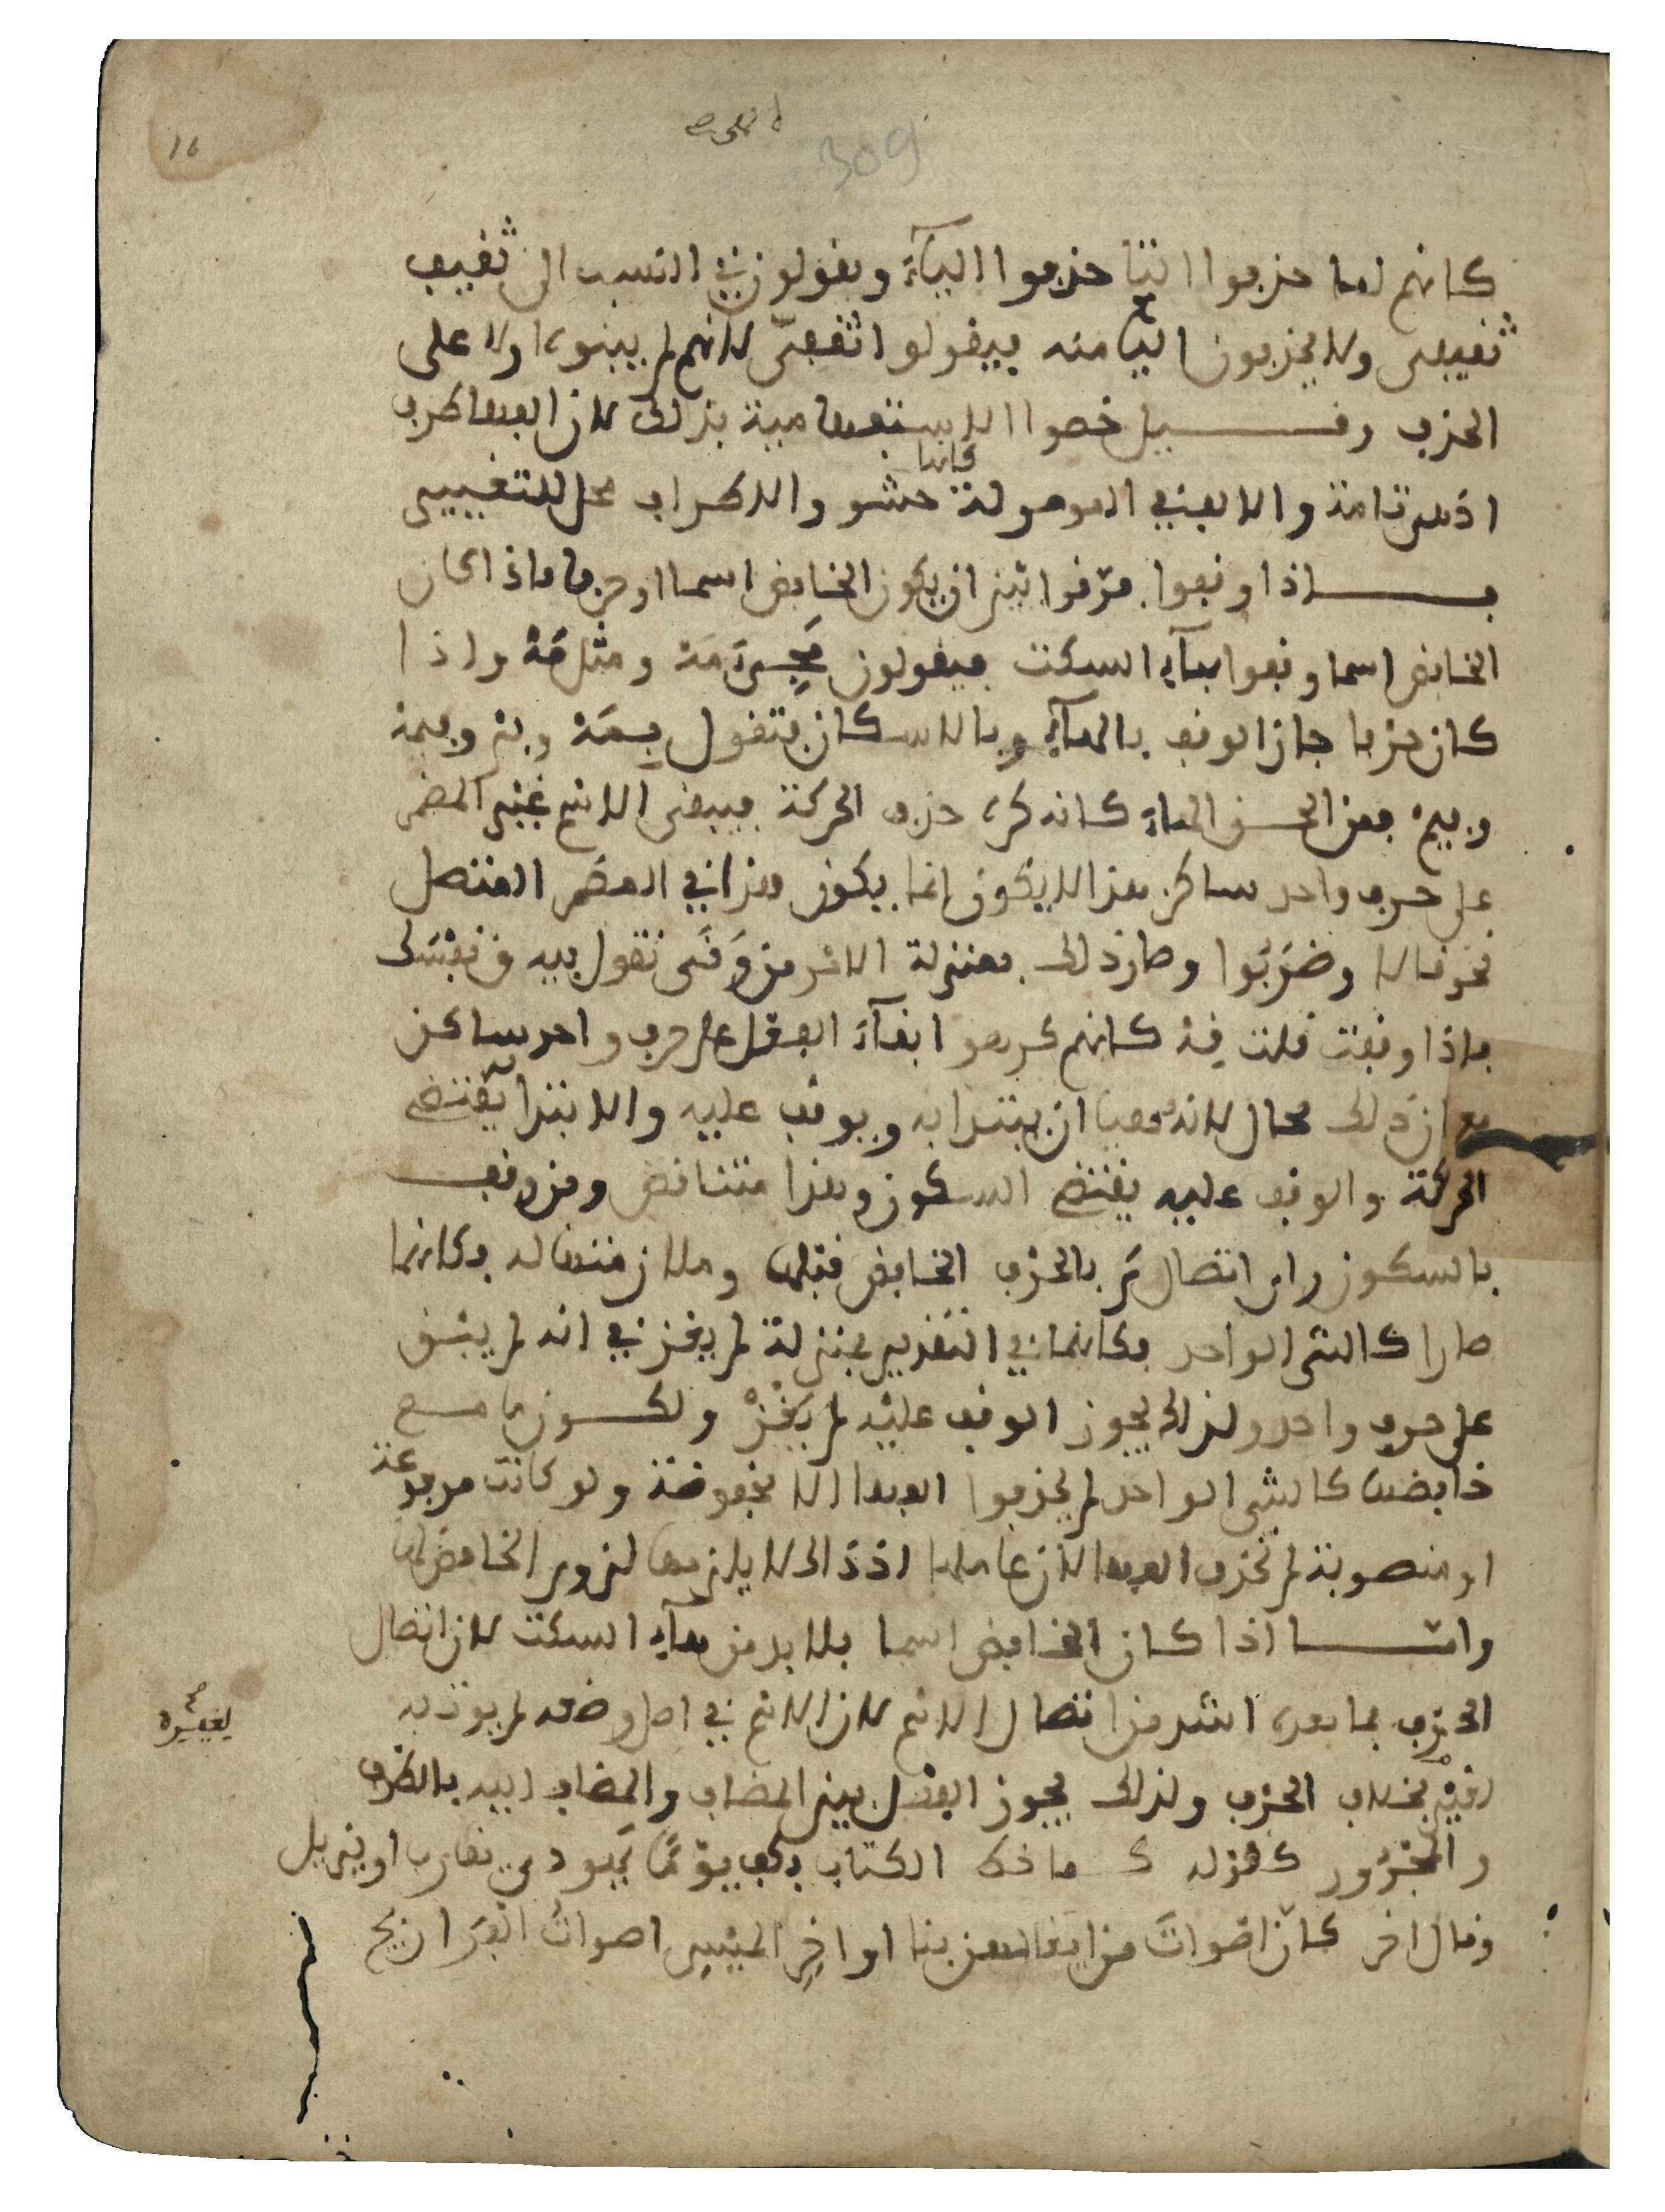 309
16
كانهم لما حذفوا التا حذفوا الياء ويقولون في النسب الى ثقيف
ثقيفي ولا يحذفون اليا منه فيقولوا ثقفي لانهم لم يبنوه اولا على
الحذف وقيل خصوا الاستفهامية بذلك لان الفها طرف
اذ هي تامة والالف في الموصولة كانها حشو والاطراف محل للتغيير
فاذا وقفوا فرقوا بين ان يكون الخافض اسما او حرفا فاذا كان
الخافض اسما وقفوا بهاء السكت فيقولون مجيء مه ومثل مه واذا
كان حرفا جاز الوقف بالهاء وبالاسكان فتقول بمه وبم وفيمه
وفيم فمن الحق الهاء كانه كره حذف الحركة فيبقى الاسم غير المضمر
على حرف واحد ساكن هذا لا يكون انما يكون هذا في المضمر المتصل
نحو قالا وضربوا وصار ذلك بمنزلة الامر من وقى تقول فيه ق نفسك
فاذا وقفت قلت قه كانهم كرهوا ابقاء الفعل على حرف واحد ساكن
مع ان ذلك محال لانه محيا ان يبتدا به ويوقف عليه والابتدا يقتضي
الحركة والوقف عليه يقتضي السكون وهذا متناقض ومن وقف
بالسكون راى اتصال م بالحرف الخافض قبلها وملازمتها له فكانهما
صارا كالشي الواحد فكانها في التقدير بمنزلة لم يغز في انه لم يبق
على حرف واحد ولذلك يجوز الوقف عليه لم يغز ولكون ما مع
خافضها كالشي الواحد لم يحذفوا الفها الا مخفوضة ولو كانت مرفوعة
او منصوبة لم تحذف الفها لان عاملها اذ ذاك لا يلزمها لزوم الخافض لها
واما اذا كان الخافض اسما فلا بد من هاء السكت لان اتصال
الحرف بما بعده اشد من اتصال الاسم لان الاسم في اصل وضعه لم يوت به
لغيره بخلاف الحرف ولذلك يجوز الفصل بين المضاف والمضاف اليه بالظرف
والمجرور كقوله كما خط الكتاب بكف يوما يهودي يقارب او يزيل
وقال اخر كان اصوات من ايغالهن بنا اواخر الميس اصوات الفراريج